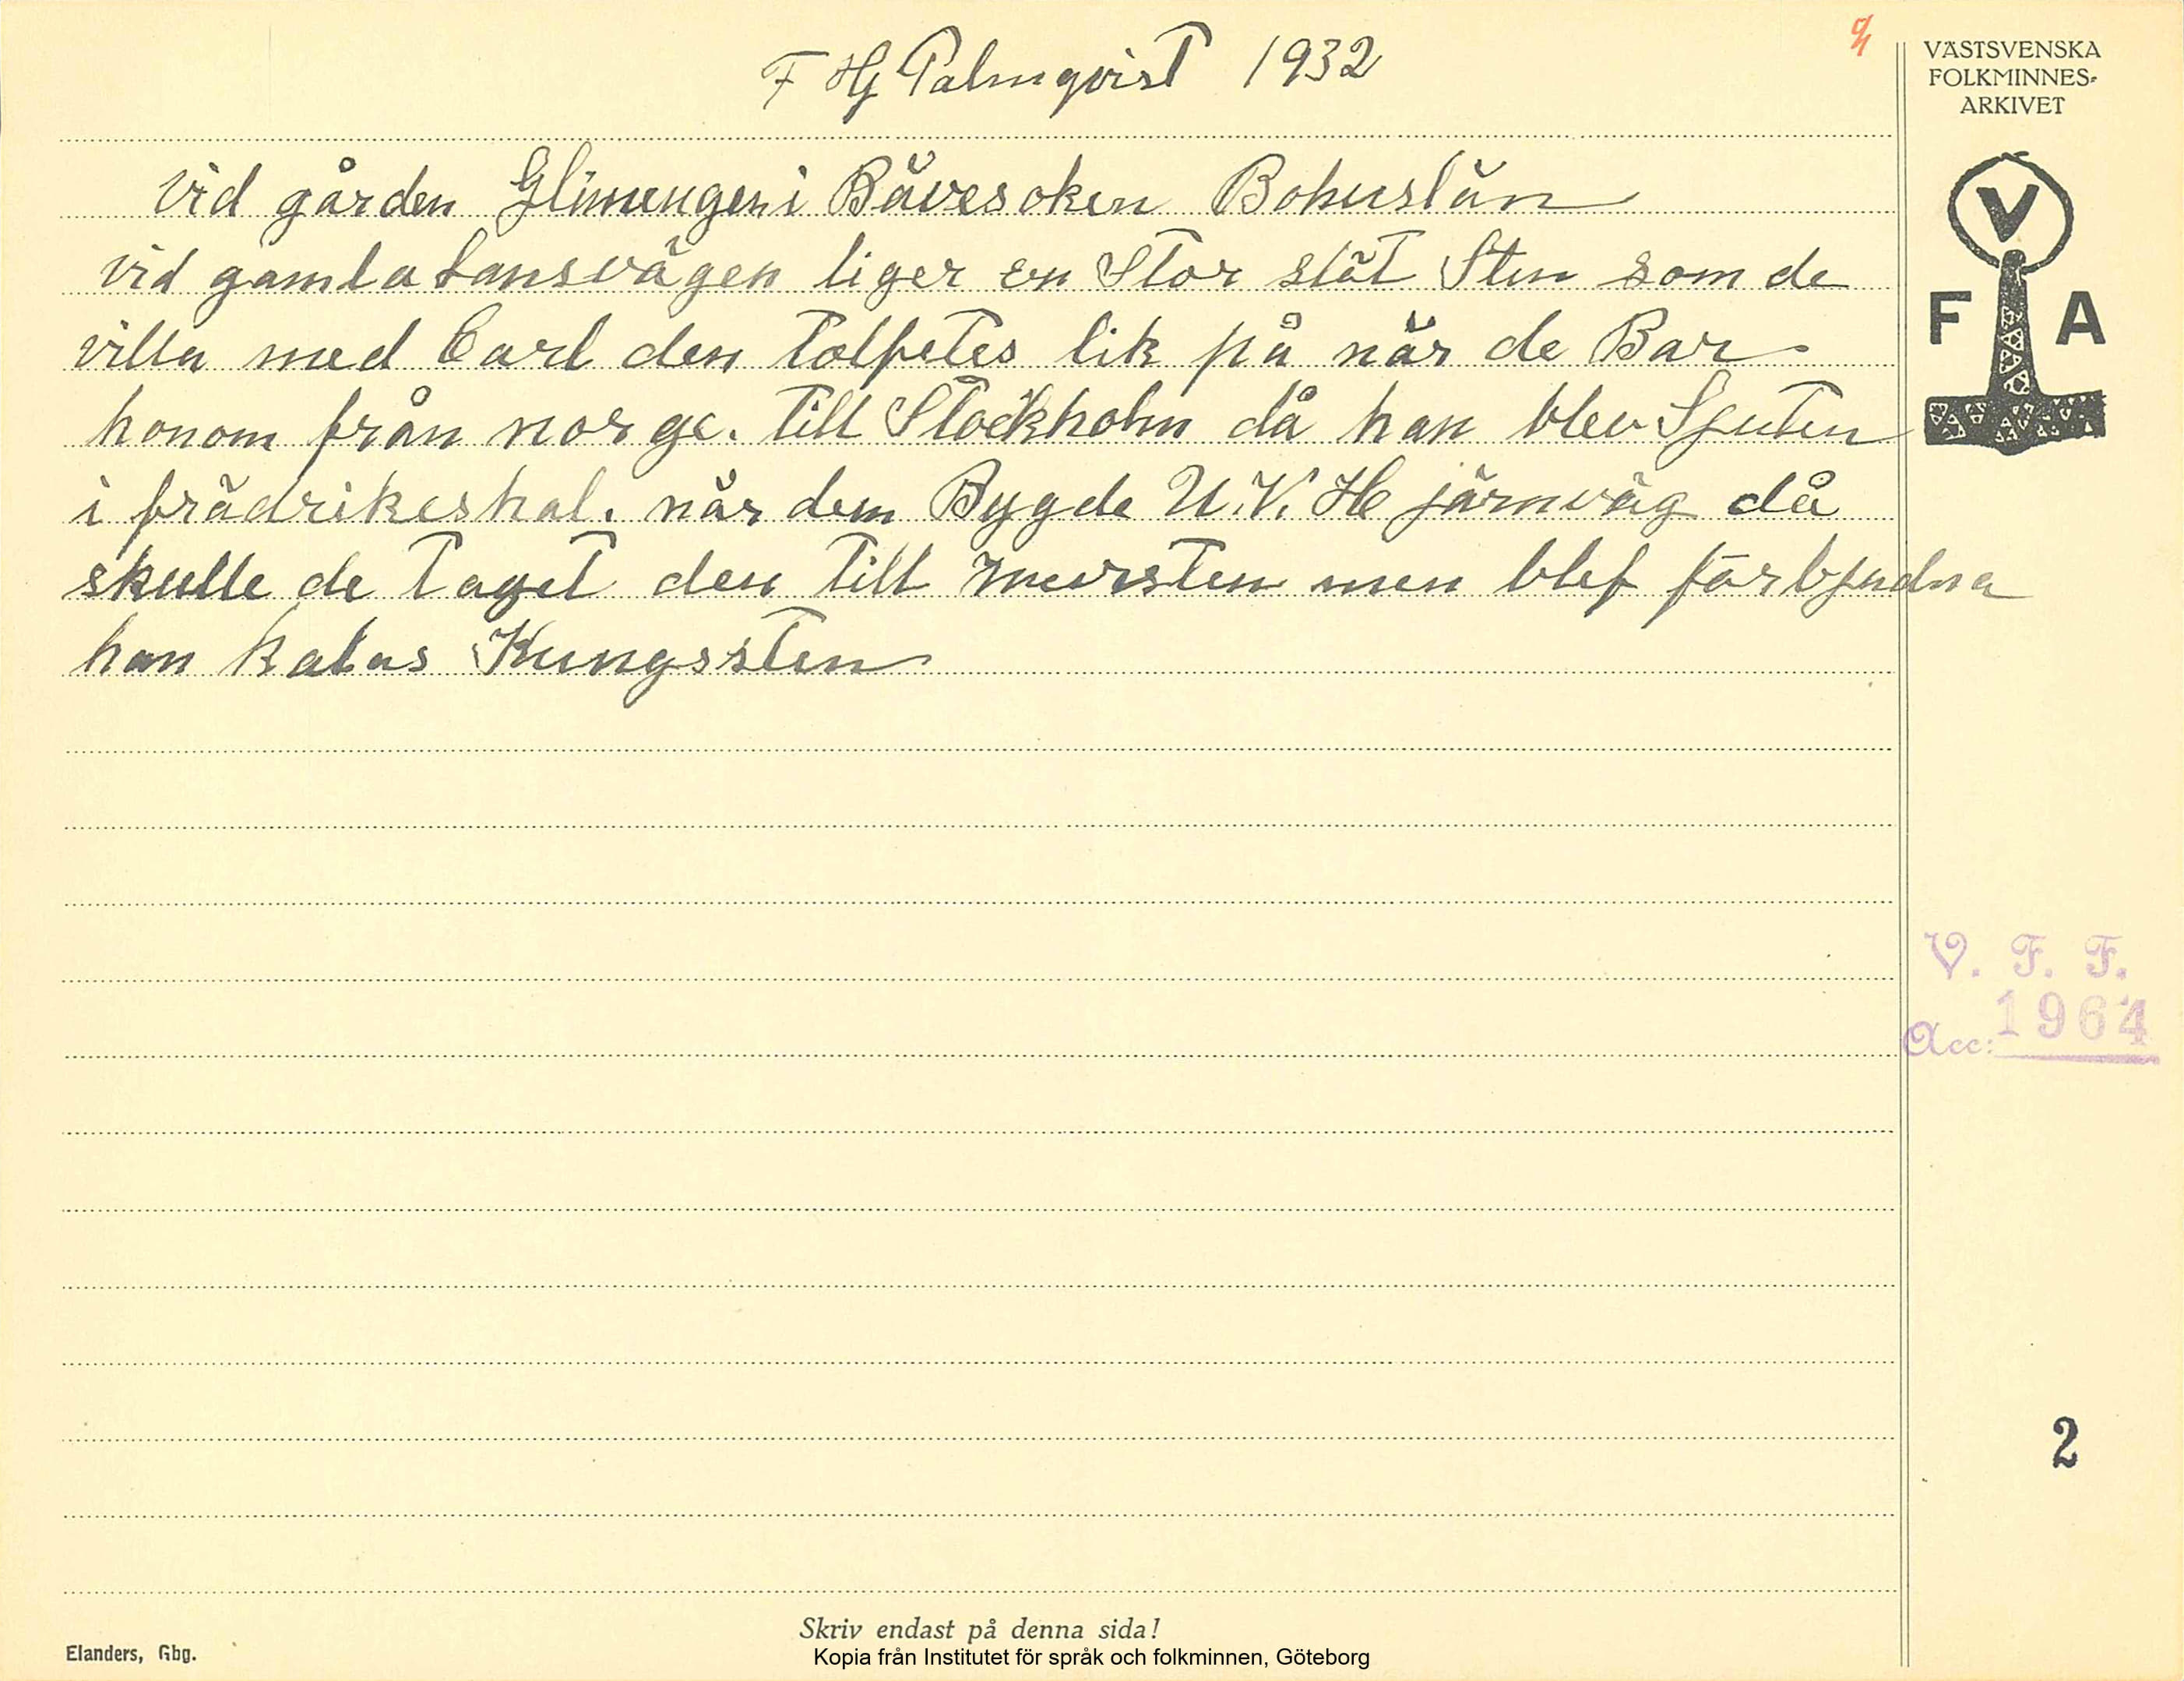 F Hj Palmqvist 1932
VÄSTSVENSKA
FOLKMINNES-
ARKIVET
V
F A
vid gården Glimmingen i Bäve soken Bohuslän
vid gamla lansvägen liger en Stor slät Sten som de
villa med Carl den tolftes lik på när de Bar
honom från norge. till Stockholm då han blev Sjuten
i frädrikeshal. när dem Bygde U. V. H järnväg då
skulle de taget den till mursten men blef förbjudna
han kalas Kungssten
V. F. F.
Acc: 1964
2
Skriv endast på denna sida!
Elanders, Gbg.
Kopia från Institutet för språk och folkminnen, Göteborg